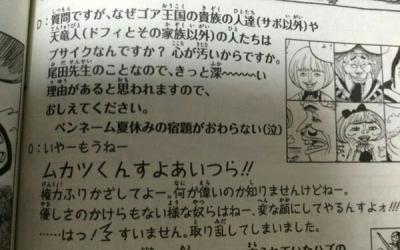 D:質問ですが、なぜゴア王国の貴族の人達(サボ以外)や
天竜人(ドフィとその家族以外)の人たちは
ブサイクなんですか? 心が汚いからですか。
尾田先生のことなので、きっと深〜〜〜い
理由があると思われますので、
おしえてください。
ペンネーム夏休みの宿題がおわらない(泣)
O:いやーもうねー
ムカツくんすよあいつら!!
権力ふりかざしてよー。何が偉いのか知りませんけどねー。
優しさのかけらもない様な奴らはねー、変な顔にしてやるんすよォ!!!
……はっ! すいません。取り乱してしまいました。